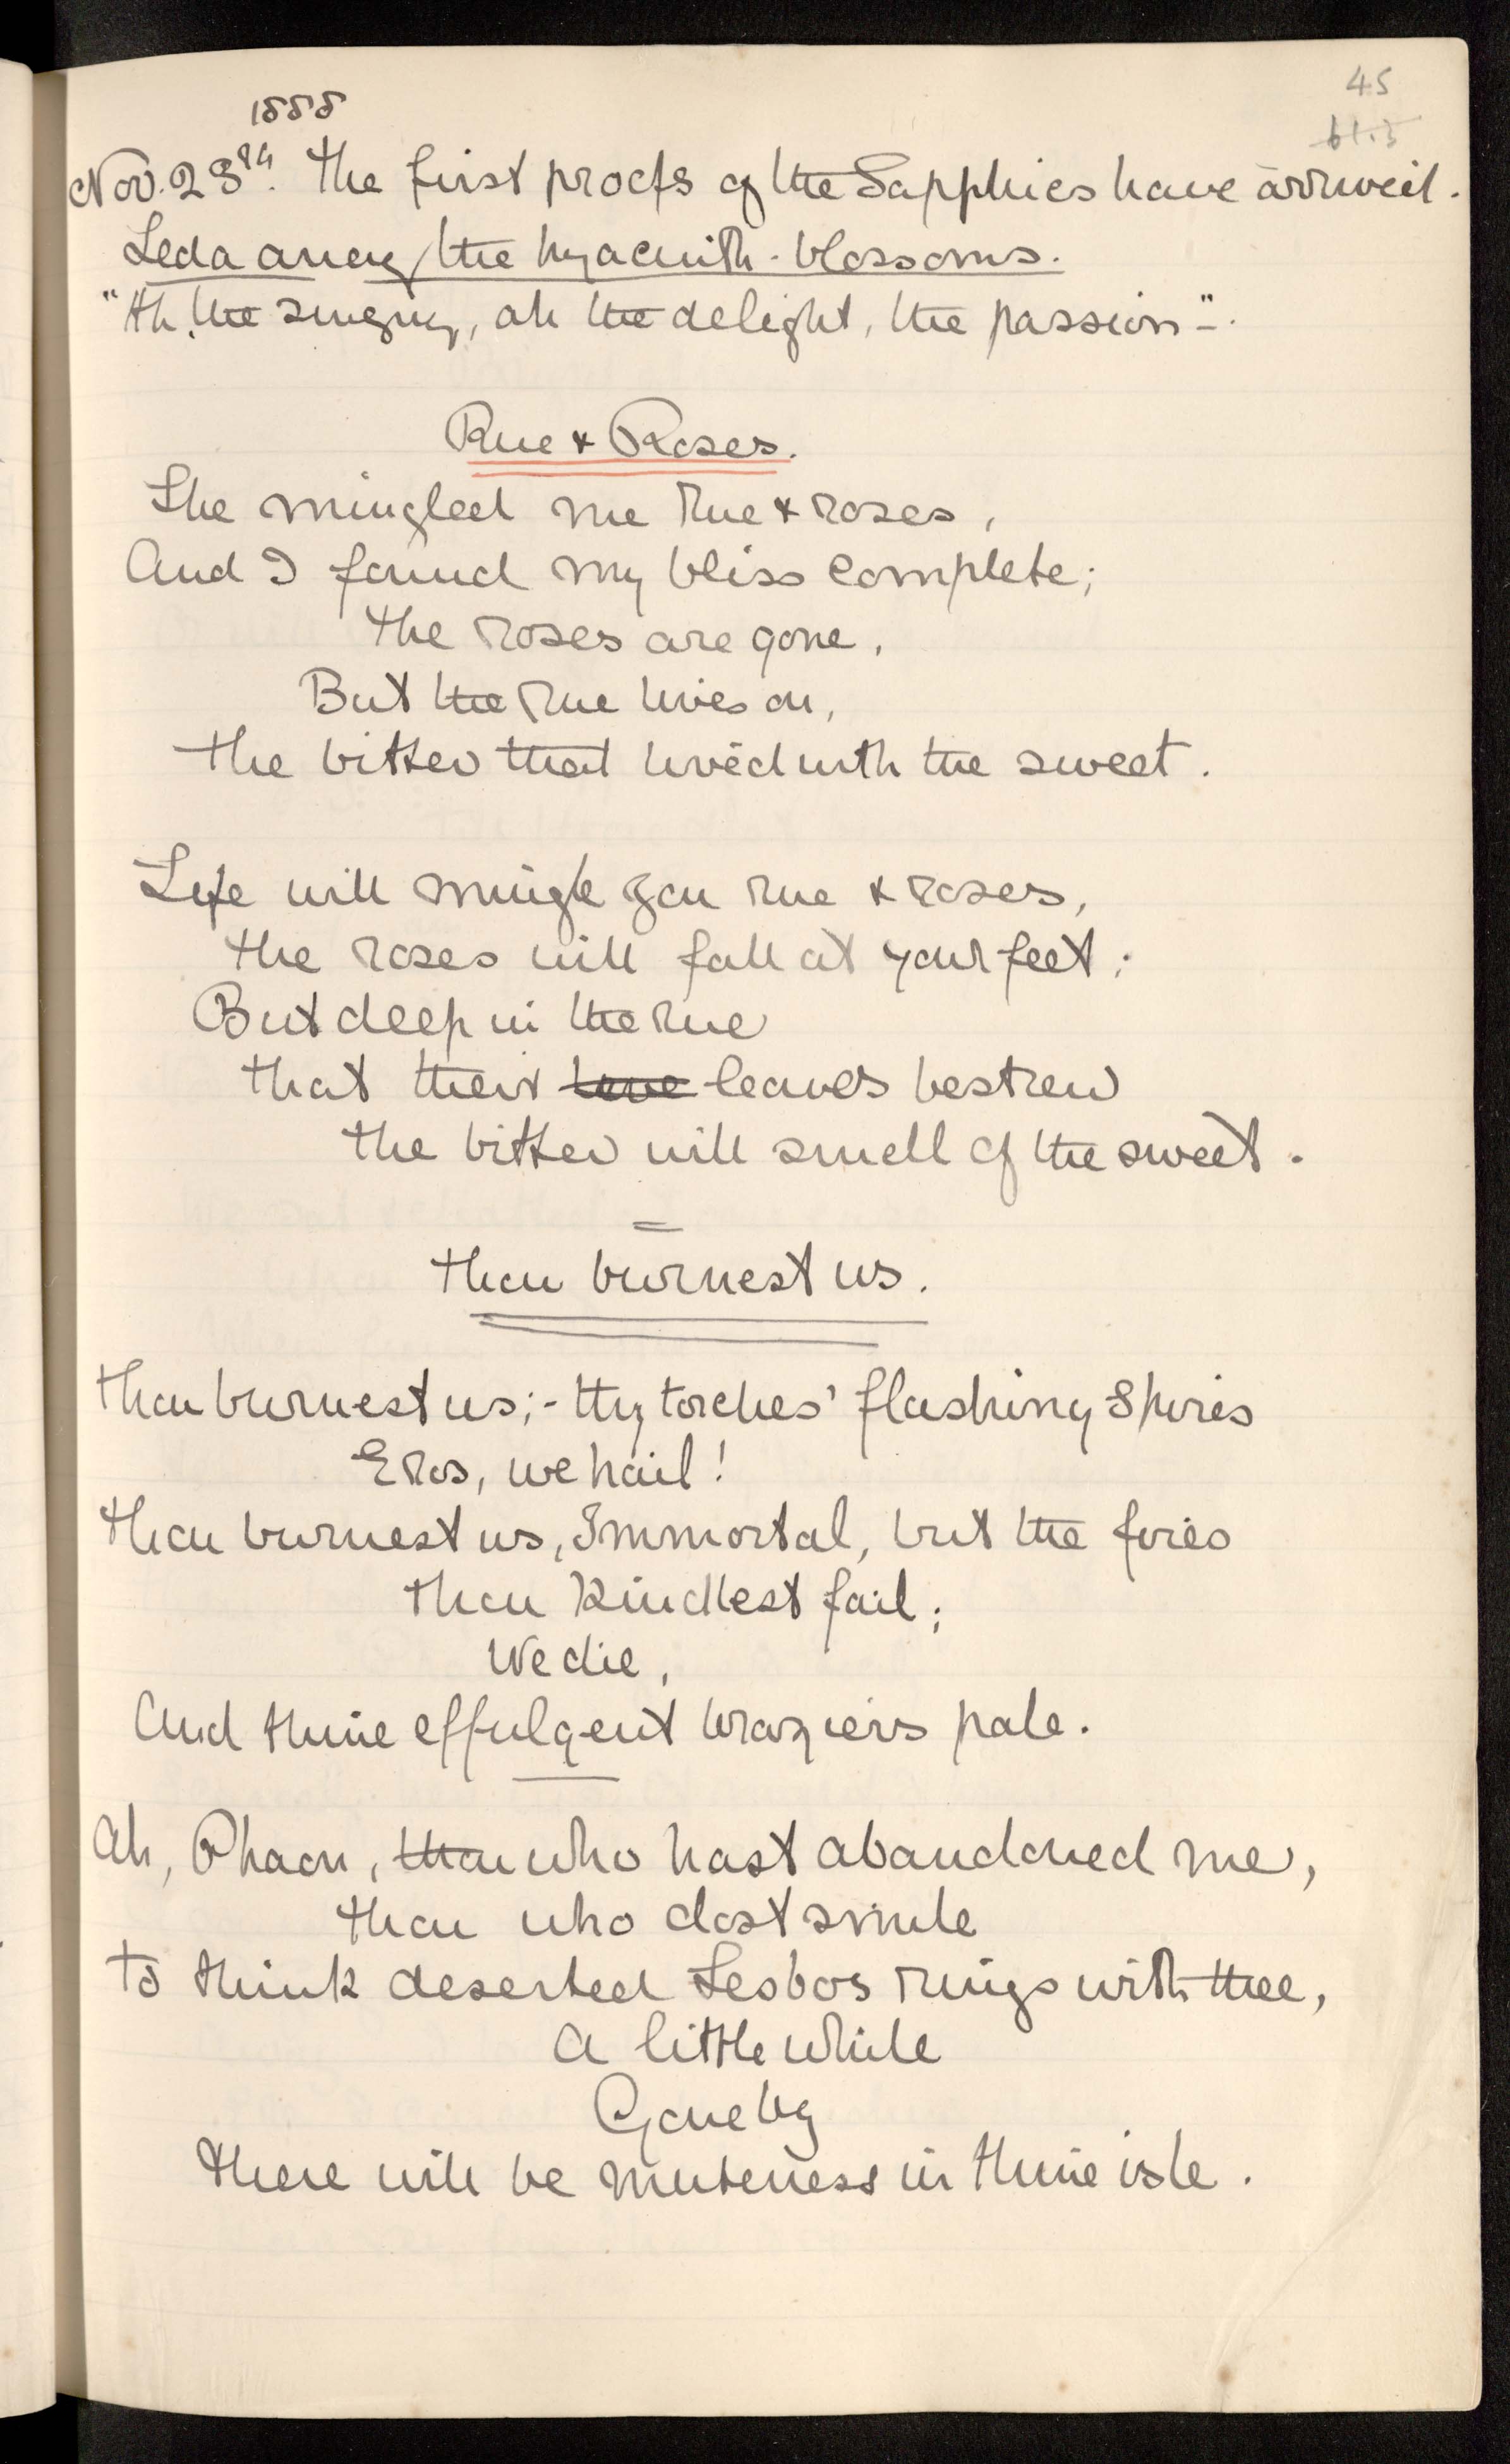 45
1888
Nov. 28th. The first proofs of the Sapphics have arrived.
Leda among the hyacinth-blossoms.
"Ah, the singing, ah the delight, the passion-".
Rue & Roses.
She mingled me rue & roses,
And I found my bliss complete;
The roses are gone,
But the rue lives on,
The bitter that lived with the sweet.
Life will mingle you rue & roses,
The roses will fall at your feet;
But deep in the rue
That their love leaves bestrew
The bitter will smell of the sweet.
Thou burnest us.
Thou burnest us;- thy torches' flashing spires
Eros, we hail!
Thou burnest us, Immortal, but the fires
Thou kindlest fail;
We die,
And thine effulgent braziers pale.
Ah, Phaon, thou who hast abandoned me,
Thou who dost smile
To think deserted Lesbos rings with thee,
A little while
Gone by
There will be muteness in thine isle.